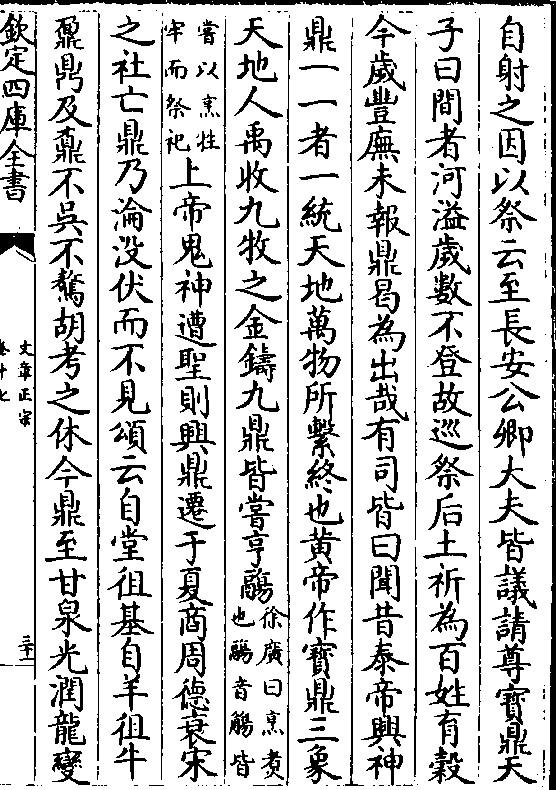 自射之因以祭云至長安公卿大夫皆議請尊寳鼎天
子曰間者河溢歲數不登故巡祭后土祈為百姓育穀
今歲豐廡未報鼎曷為出哉有司皆曰聞昔泰帝興神
鼎一一者一統天地萬物所繫終也黄帝作寳鼎三象
天地人禹收九牧之金鑄九鼎皆嘗亨鬺徐廣曰烹煮也鬺音觴皆
嘗以烹牲牢而祭祀上帝鬼神遭聖則興鼎遷于夏商周德衰宋
之社亡鼎乃淪没伏而不見頌云自堂徂基自羊徂牛
鼐鼎及鼒不吳不驁胡考之休今鼎至甘泉光潤龍變
欽定四庫全書
文章正宗
卷十七
三十一